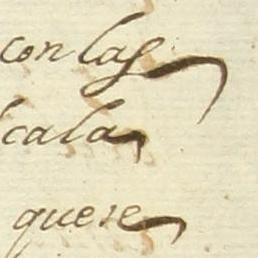 con las
scala
que se